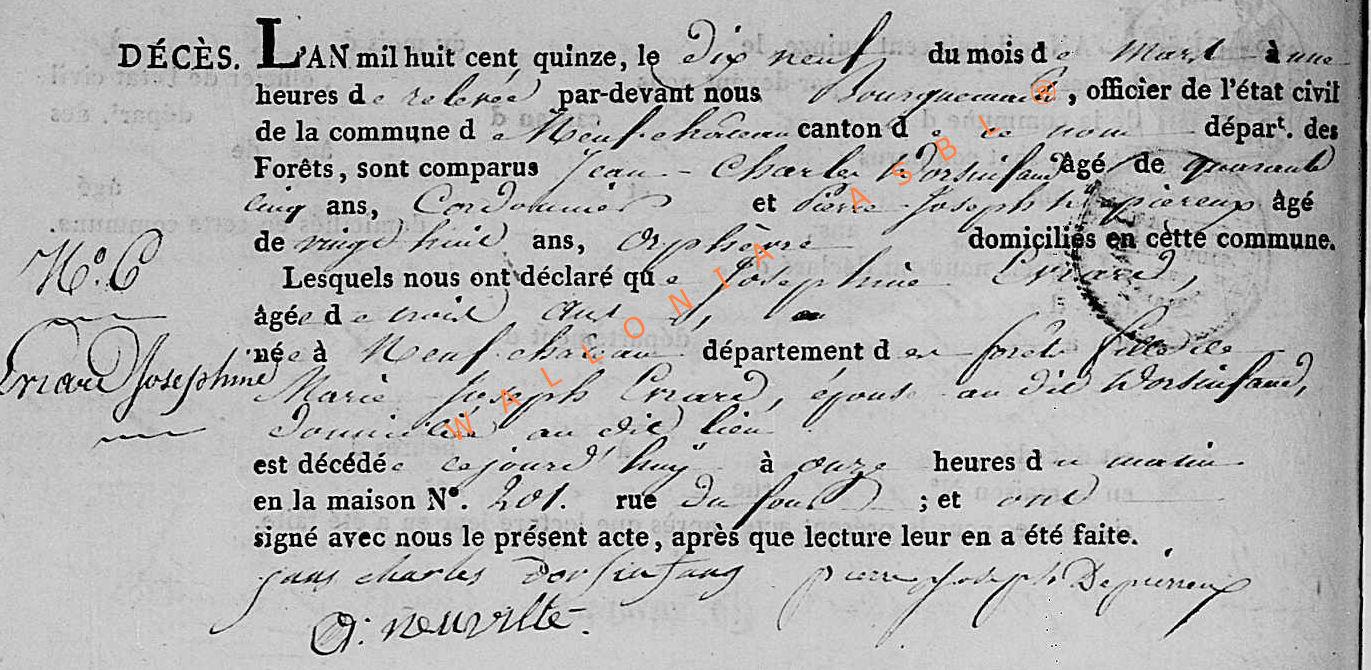 DÉCÈS. L'AN mil huit cent quinze, le dix neuf du mois de Mars à une
heures de relevée par-devant nous Bourguemaitre, officier de l'état civil
de la commune de Neufchâteau canton de ce nom départ. des
Forêts, sont comparus Jean-Charles Dorsinfand âgé de quarante
cinq ans, Cordonnier et Pierre Joseph Depiereux âgé
de vingt huit ans, Orphèvre domiciliés en cette commune.
Lesquels nous ont déclaré que Josephine Evrard,
âgée de trois ans
née à Neufchateau département des forêts fille de
Marie Joseph Evrard, épouse au dit Dorsinfand,
domiciliée au dit lieu
est décédée cejourd'huy à onze heures du matin
en la maison N°. 201. rue du four ; et ont
signé avec nous le présent acte, après que lecture leur en a été faite.
N°. 6
Evrard Josephine
jans charles Dorsinfang pierre Joseph Depierreux
neuville
WALLONIA ASBL ®